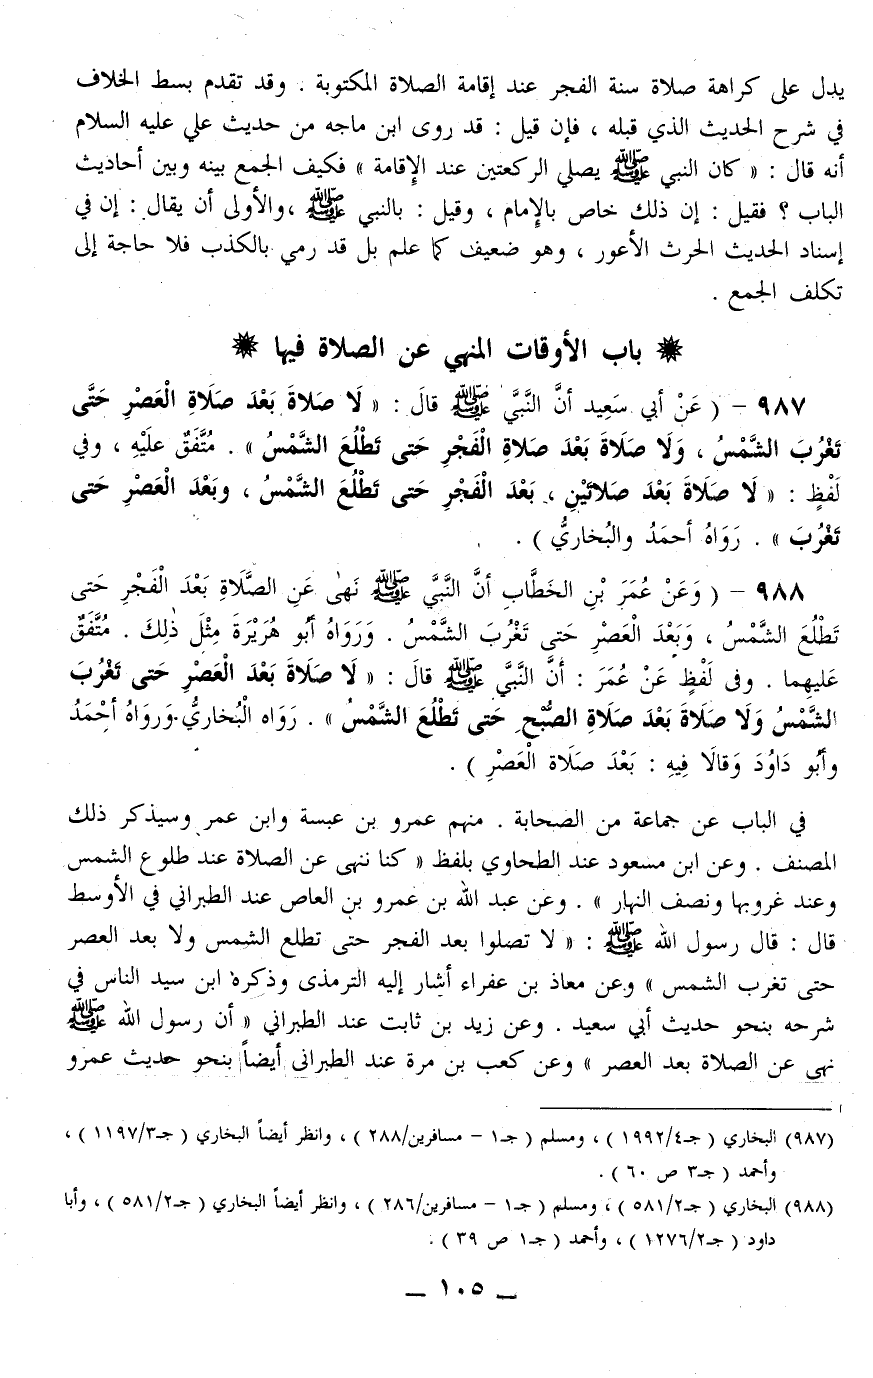 يدل على كراهة صلاة سنة الفجر عند إقامة الصلاة المكتوبة . وقد تقدم بسط الخلاف
في شرح الحديث الذي قبله ، فإن قيل : قد روى ابن ماجه من حديث علي عليه السلام
أنه قال : « كان النبي ﷺ يصلي الركعتين عند الإِقامة » فكيف الجمع بينه وبين أحاديث
الباب ؟ فقيل : إن ذلك خاص بالإِمام ، وقيل : بالنبي ﷺ ،والأولى أن يقال : إن في
إسناد الحديث الحرث الأعور ، وهو ضعيف كما علم بل قد رمي بالكذب فلا حاجة إلى
تكلف الجمع .
❋ باب الأوقات المنهي عن الصلاة فيها ❋
٩٨٧ – ( عَنْ أبي سَعِيد أنَّ النَّبيَّ ﷺ قالَ : « لَا صَلاةَ بَعْدَ صَلَاةِ الْعَصْرِ حَتَّى
تَغْرُبَ الشَّمْسُ ، وَلَا صَلَاةَ بَعْدَ صَلاةِ الْفَجْرِ حَتى تَطْلُعَ الشَّمْسُ » . مُتَّفَقٌ عَلَيْهِ ، وفي
لَفْظٍ : « لَا صَلَاةَ بَعْدَ صَلاتَيْنِ ، بَعْدَ الْفَجْرِ حَتى تَطْلُعَ الشَّمْسُ ، وبَعْدَ الْعَصْرِ حَتى
تَغْرُبَ » . رَوَاهُ أحمَدُ والبُخاريُّ ) .
٩٨٨ – ( وَعَنْ عُمَرَ بْنِ الخَطَّابِ أنَّ النَّبيَّ ﷺ نَهىٰ عَنِ الصَّلَاةِ بَعْدَ الْفَجْرِ حَتى
تَطْلُعَ الشَّمْسُ ، وَبَعْدَ الْعَصْرِ حَتى تَغْرُبَ الشَّمْسُ . وَرَوَاهُ أبُو هُرَيْرَةَ مِثْلَ ذٰلِكَ . مُتَّفَقٌ
عَليهِما . وفى لَفْظٍ عَنْ عُمَرَ : أنَّ النَّبيَّ ﷺ قالَ : « لَا صَلَاةَ بَعْدَ الْعَصْرِ حَتى تَغْرُبَ
الشَّمْسُ وَلَا صَلَاةَ بَعْدَ صَلاةِ الصُّبْحِ حَتى تَطْلُعَ الشَّمْسُ » . رَوَاه الْبُخاريُّ.وَروَاهُ أحْمَدُ
وأبُو دَاوُدَ وَقالَا فِيهِ : بَعْدَ صَلَاة الْعَصْرِ ) .
في الباب عن جماعة من الصحابة . منهم عمرو بن عبسة وابن عمر وسيذكر ذلك
المصنف . وعن ابن مسعود عند الطحاوي بلفظ « كنا ننهى عن الصلاة عند طلوع الشمس
وعند غروبها ونصف النهار » . وعن عبد الله بن عمرو بن العاص عند الطبراني في الأوسط
قال : قال رسول الله ﷺ : « لا تصلوا بعد الفجر حتى تطلع الشمس ولا بعد العصر
حتى تغرب الشمس » وعن معاذ بن عفراء أشار إليه الترمذى وذكره ابن سيد الناس في
شرحه بنحو حديث أبي سعيد . وعن زيد بن ثابت عند الطبراني « أن رسول الله ﷺ
نهى عن الصلاة بعد العصر » وعن كعب بن مرة عند الطبرانى أيضاً بنحو حديث عمرو
(٩٨٧) البخاري ( جـ٤/١٩٩٢ ) ، ومسلم ( جـ١ – مسافرين/٢٨٨ ) ، وانظر أيضاً البخاري ( جـ٣/١١٩٧ ) ،
وأحمد ( جـ٣ ص ٦٠ ) .
(٩٨٨) البخاري ( جـ٢/٥٨١ ) ، ومسلم ( جـ١ – مسافرين/٢٨٦ ) ، وانظر أيضاً البخاري ( جـ٢/٥٨١ ) ، وأبا
داود ( جـ٢/١٢٧٦ ) ، وأحمد ( جـ١ ص ٣٩ ) .
– ١٠٥ –